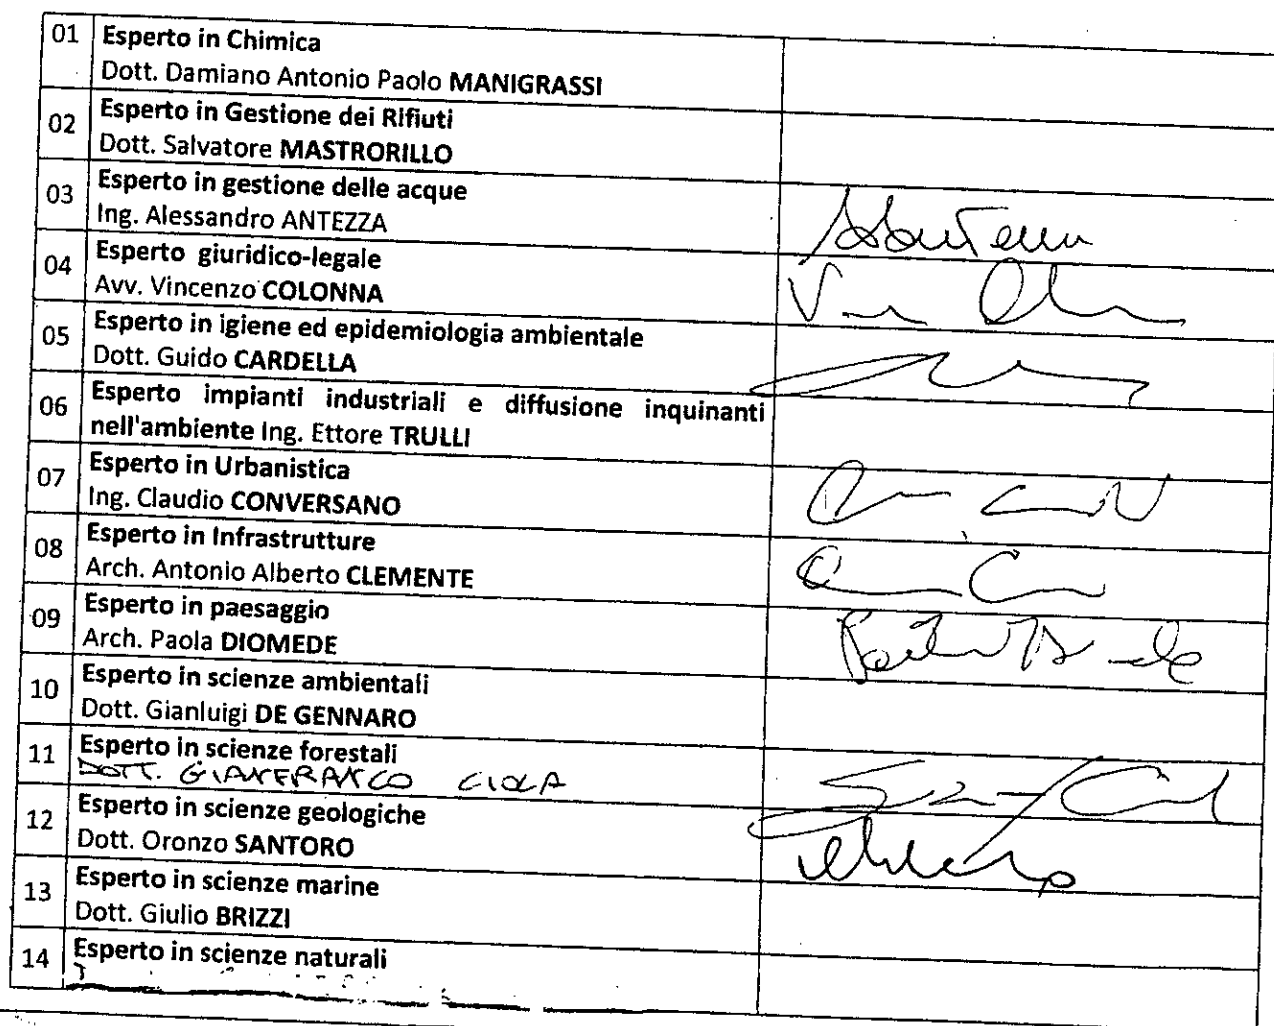 01 Esperto in Chimica
Dott. Damiano Antonio Paolo MANIGRASSI
02 Esperto in Gestione dei Rifiuti
Dott. Salvatore MASTRORILLO
03 Esperto in gestione delle acque
Ing. Alessandro ANTEZZA
04 Esperto giuridico-legale
Avv. Vincenzo COLONNA
05 Esperto in igiene ed epidemiologia ambientale
Dott. Guido CARDELLA
06 Esperto impianti industriali e diffusione inquinanti
nell'ambiente Ing. Ettore TRULLI
07 Esperto in Urbanistica
Ing. Claudio CONVERSANO
08 Esperto in Infrastrutture
Arch. Antonio Alberto CLEMENTE
09 Esperto in paesaggio
Arch. Paola DIOMEDE
10 Esperto in scienze ambientali
Dott. Gianluigi DE GENNARO
11 Esperto in scienze forestali
DOTT. GIANFRANCO CIOLA
12 Esperto in scienze geologiche
Dott. Oronzo SANTORO
13 Esperto in scienze marine
Dott. Giulio BRIZZI
14 Esperto in scienze naturali